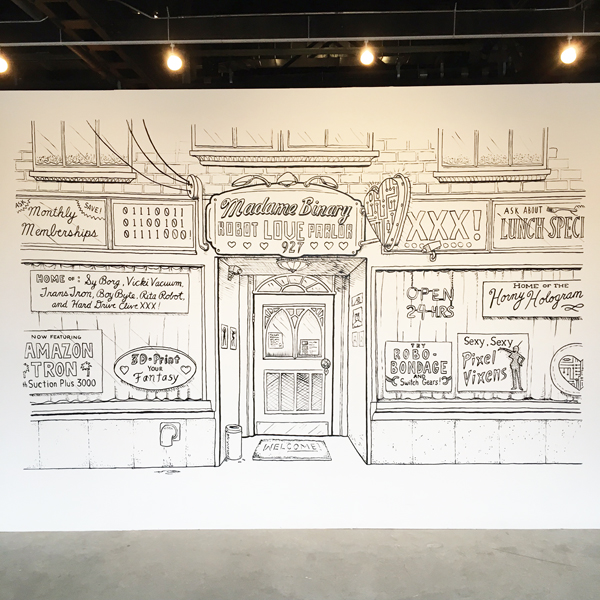 ASK
Monthly
Memberships
SAVE!
01110011
01100101
01111000!
Madame Binary
ROBOT LOVE PARLOR
927
XXX!
ASK ABOUT
LUNCH SPECI
HOME OF: Sy Borg, Vicki Vacuum,
Trans Tron, Boy Byte, Rita Robot,
and Hard Drive Clive XXX!
NOW FEATURING
AMAZON
TRON
Suction Plus 3000
3D-Print
YOUR
Fantasy
WELCOME!
OPEN
24-HRS
HOME OF THE
Horny Hologram
TRY
ROBO-
BONDAGE
AND
Switch Gears!
Sexy, Sexy
Pixel
Vixens